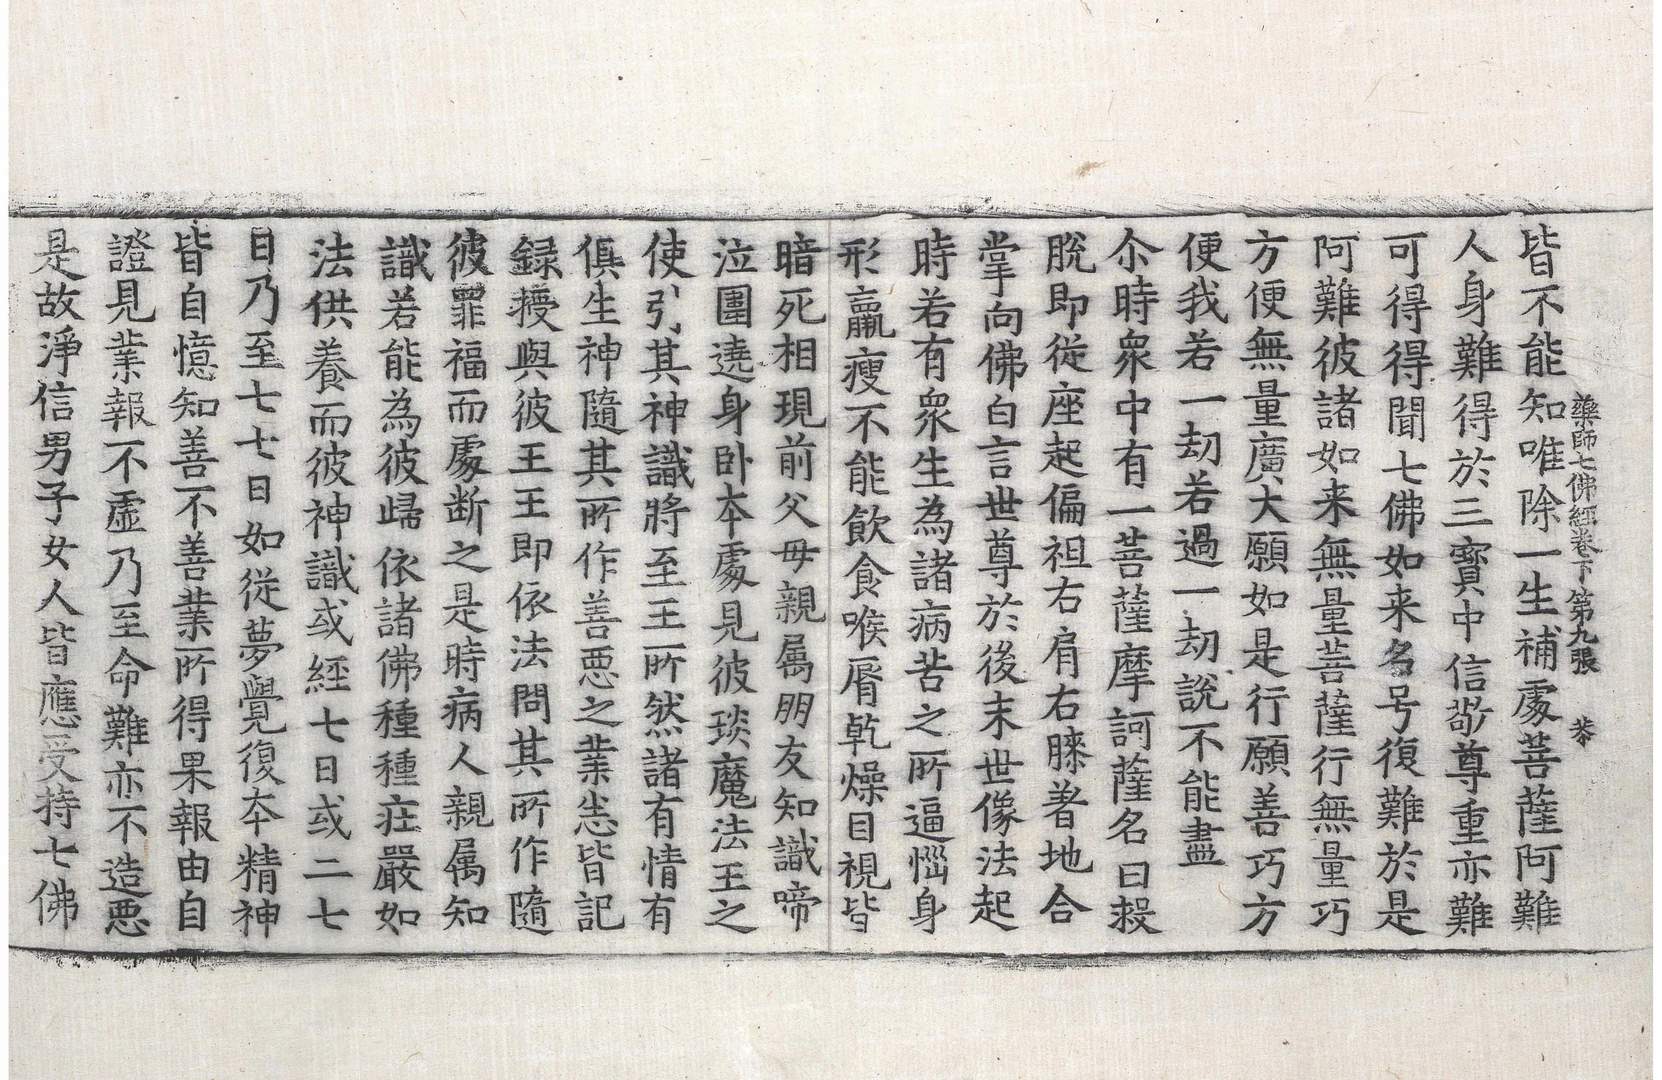 藥師七佛經卷下 第九張 恭
皆不能知唯除一生補處菩薩阿難
人身難得於三寳中信敬尊重亦難
可得得聞七佛如来名号復難於是
阿難彼諸如来無量菩薩行無量巧
方便無量廣大願如是行願善巧方
便我若一劫若過一劫說不能盡
尒時衆中有一菩薩摩訶薩名曰救
脫即從座起偏袒右肩右膝著地合
掌向佛白言世尊於後末世像法起
時若有衆生為諸病苦之所逼惱身
形羸瘦不能飲食喉脣乾燥目視皆
暗死相現前父母親属朋友知識啼
泣圍遶身卧本處見彼琰魔法王之
使引其神識將至王所然諸有情有
俱生神隨其所作善惡之業悉皆記
録授與彼王王即依法問其所作隨
彼罪福而處断之是時病人親属知
識若能為彼歸依諸佛種種莊嚴如
法供養而彼神識或經七日或二七
日乃至七七日如從夢覺復本精神
皆自憶知善不善業所得果報由自
證見業報不虛乃至命難亦不造惡
是故淨信男子女人皆應受持七佛